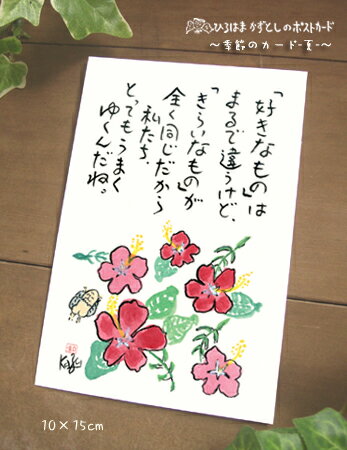 ひろはまかずとしのポストカード
〜季節のカード-夏-〜
「好きなものは
まるで違うけど、
「きらいなもの」が
全く同じだから
私たち、
とってもうまく
ゆくんだね。
Kazu
10×15cm